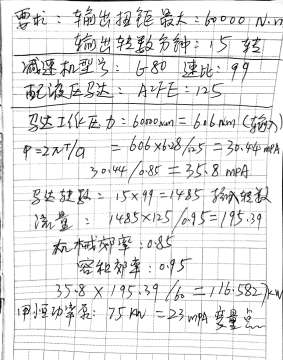 要求：输出扭距最大：60000 N.m
输出转数每分钟：15 转
减速机型号：G80 速比：99
配液压马达：A2FE：125
马达工作压力：60000nm = 606Nm (输入)
P=2πT/q = 606×6.28/125 = 30.44 MPA
30.44/0.85 = 35.8 MPA
马达转数：15×99=1485 输入转数
流量：1485×125/0.95=195.39
机械効率：0.85
容积効率：0.95
35.8 × 195.39/60 = 116.582)KW
用恒功率泵：75KW =23MPA 变量点